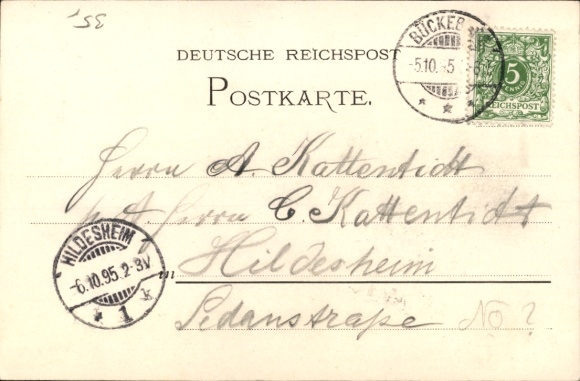 35.
DEUTSCHE REICHSPOST
POSTKARTE.
BÜCKEB
-5.10.95
5
REICHSPOST
Herrn A. Kattentidt
Herrn C. Kattentidt
HILDESHEIM
-6.10.95.2-3V
1
Hildesheim
Sedanstraße No ?